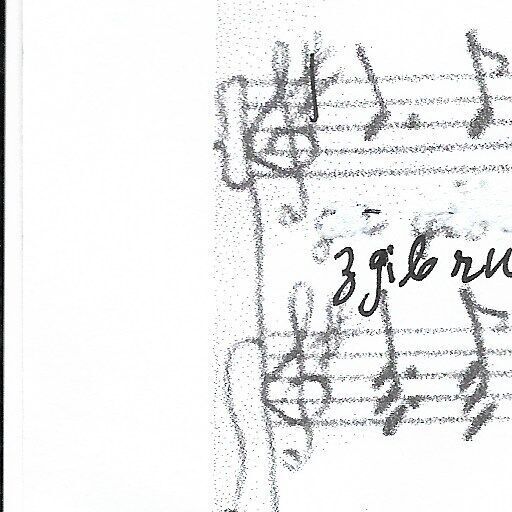 zgib ru